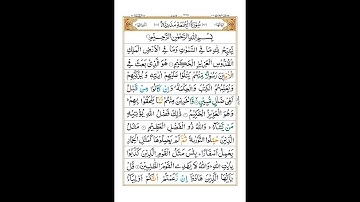 سُوْرَةُ الْجُمُعَةِ مَدَنِيَّةٌ
بِسْمِ اللّٰهِ الرَّحْمٰنِ الرَّحِيْمِ
يُسَبِّحُ لِلّٰهِ مَا فِي السَّمٰوٰتِ وَمَا فِي الْاَرْضِ الْمَلِكِ
الْقُدُّوْسِ الْعَزِيْزِ الْحَكِيْمِ هُوَ الَّذِيْ بَعَثَ فِي
الْاُمِّيّٖنَ رَسُوْلًا مِّنْهُمْ يَتْلُوْا عَلَيْهِمْ اٰيٰتِهٖ وَيُزَكِّيْهِمْ
وَيُعَلِّمُهُمُ الْكِتٰبَ وَالْحِكْمَةَ وَاِنْ كَانُوْا مِنْ قَبْلُ
لَفِيْ ضَلٰلٍ مُّبِيْنٍ وَّاٰخَرِيْنَ مِنْهُمْ لَمَّا يَلْحَقُوْا بِهِمْ
وَهُوَ الْعَزِيْزُ الْحَكِيْمُ ذٰلِكَ فَضْلُ اللّٰهِ يُؤْتِيْهِ
مَنْ يَّشَآءُ وَاللّٰهُ ذُو الْفَضْلِ الْعَظِيْمِ مَثَلُ
الَّذِيْنَ حُمِّلُوا التَّوْرٰىةَ ثُمَّ لَمْ يَحْمِلُوْهَا كَمَثَلِ الْحِمَارِ
يَحْمِلُ اَسْفَارًا بِئْسَ مَثَلُ الْقَوْمِ الَّذِيْنَ كَذَّبُوْا
بِاٰيٰتِ اللّٰهِ وَاللّٰهُ لَا يَهْدِي الْقَوْمَ الظّٰلِمِيْنَ قُلْ
يٰٓاَيُّهَا الَّذِيْنَ هَادُوْٓا اِنْ زَعَمْتُمْ اَنَّكُمْ اَوْلِيَآءُ